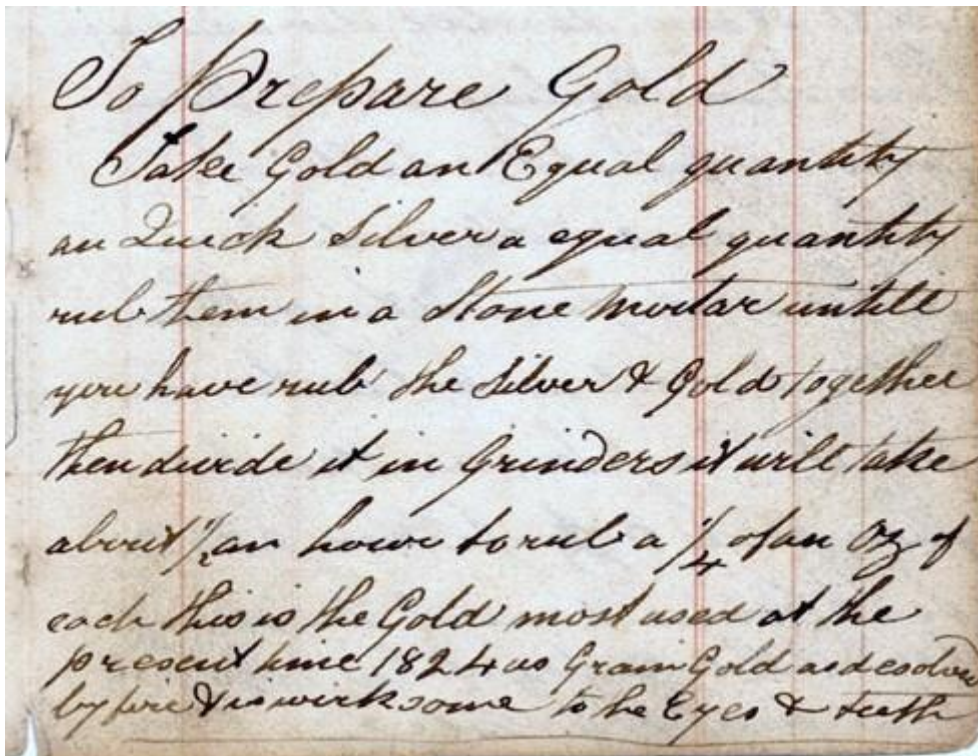 To Prepare Gold
Take Gold an Equal quantity
an Quick Silver a equal quantity
rub them in a Stone Mortar untill
you have rub the Silver & Gold together
then divide it in Grinders it will take
about 1/2 an hour to rub a 1/4 of an Oz of
each this is the Gold most used at the
present time 1824 as Grain Gold as desolved
by fire & is wirksome to the Eyes & teeth